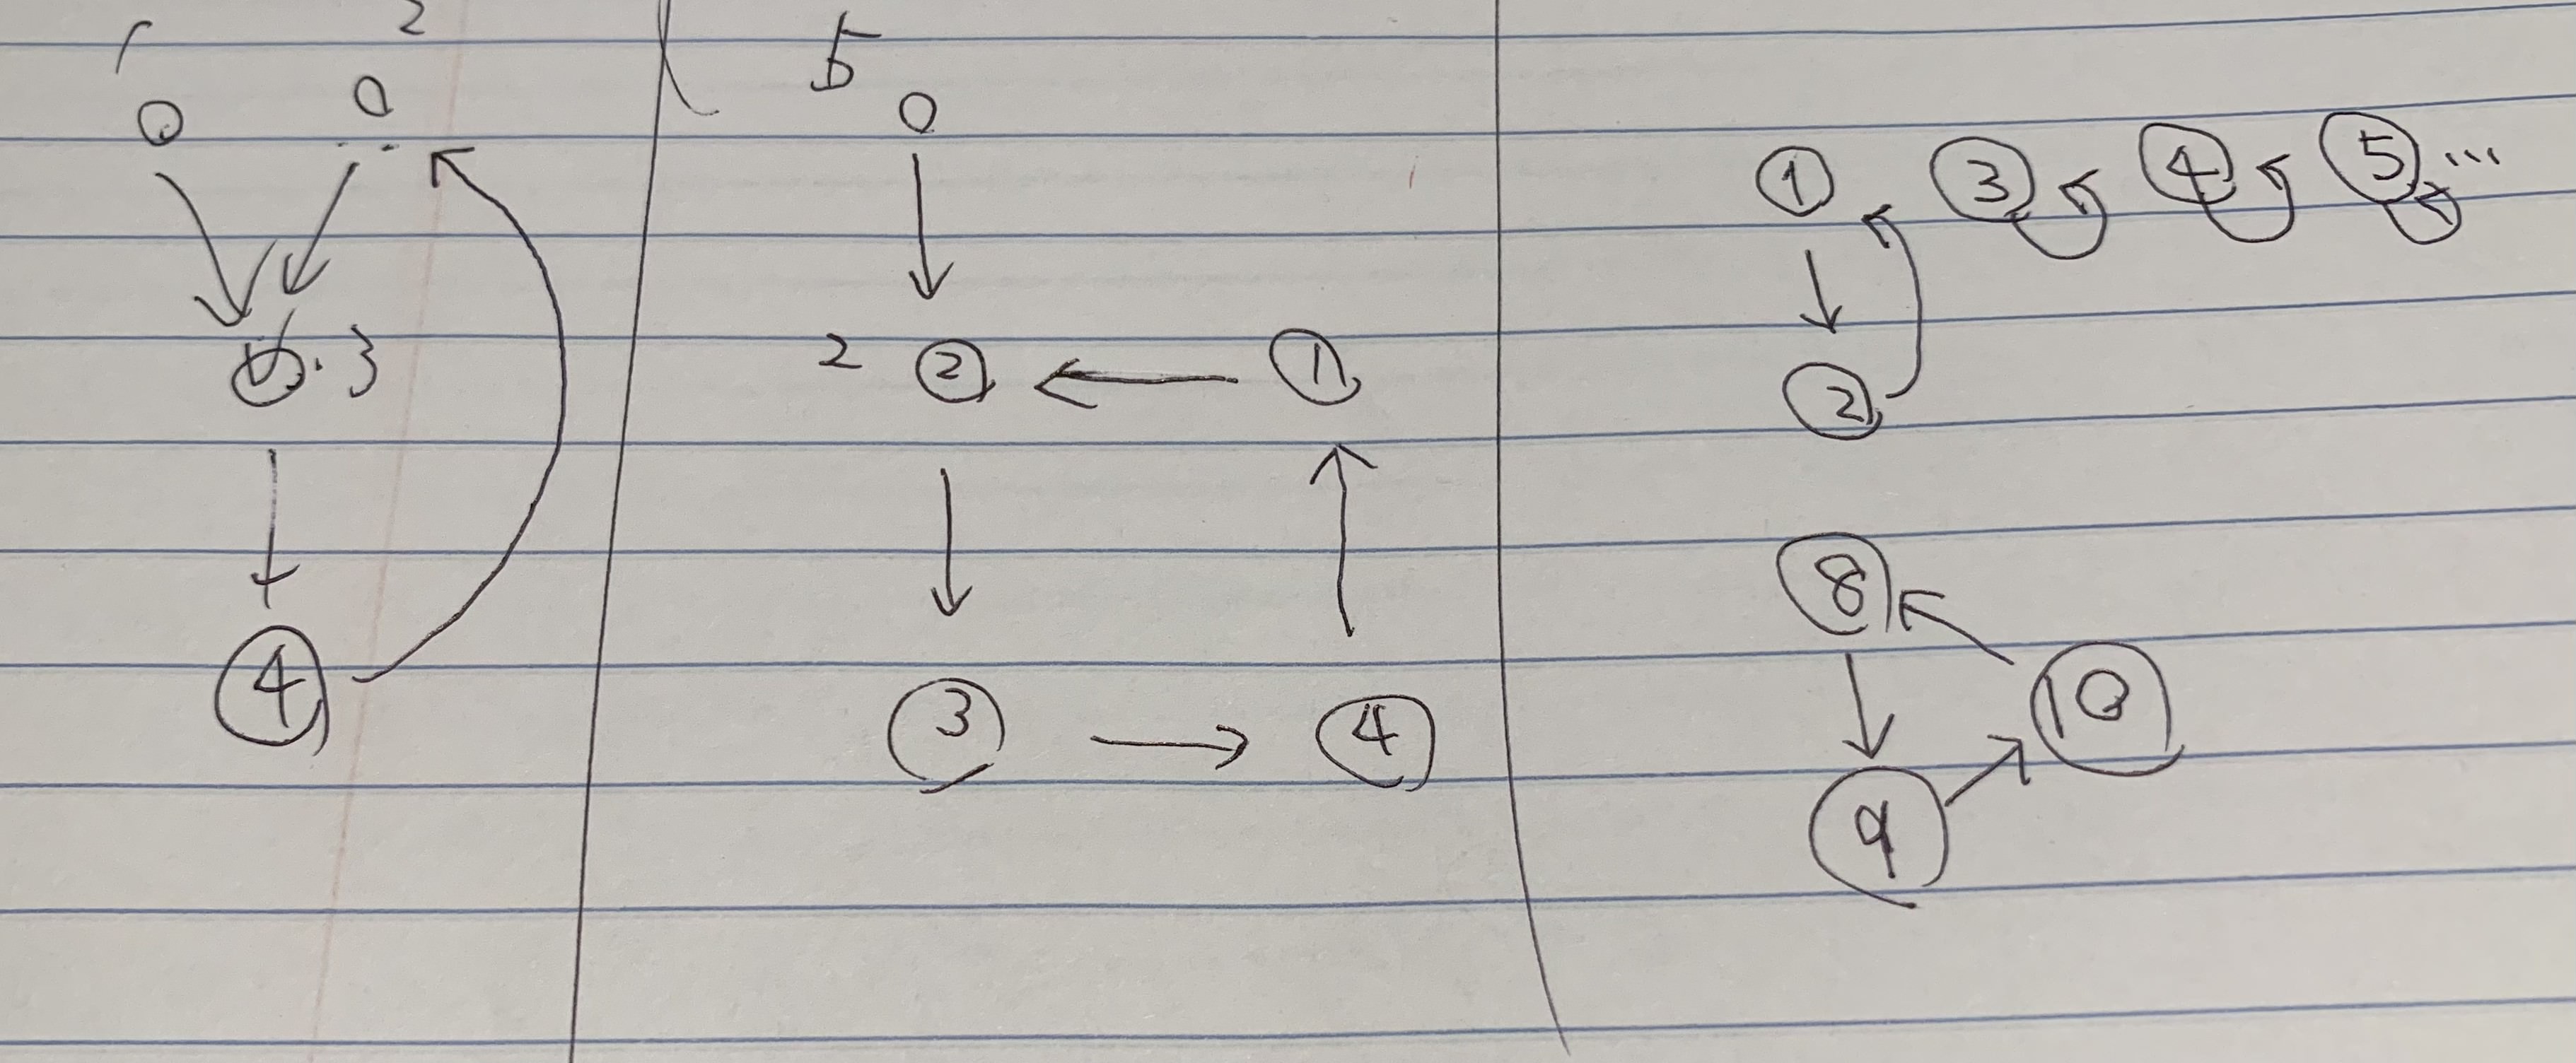 1 2
3
4
5
2 2 1
3 4
1 3 4 5 ...
2
8
10
9